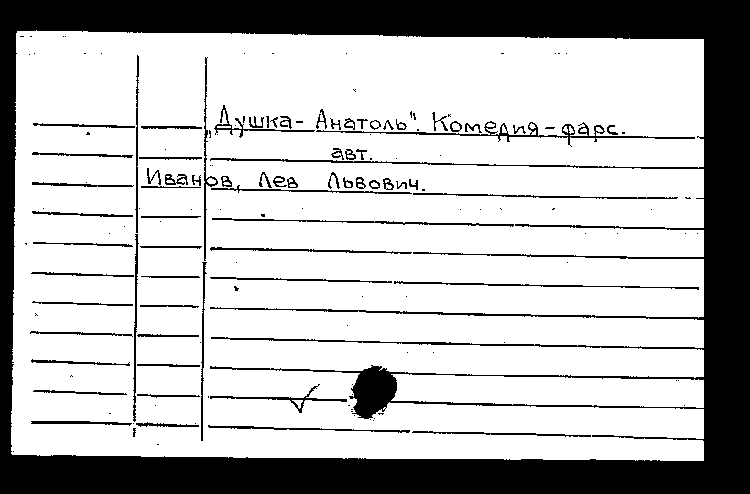 „Душка- Анатоль". Комедия-фарс.
авт.
Иванов, Лев Львович.